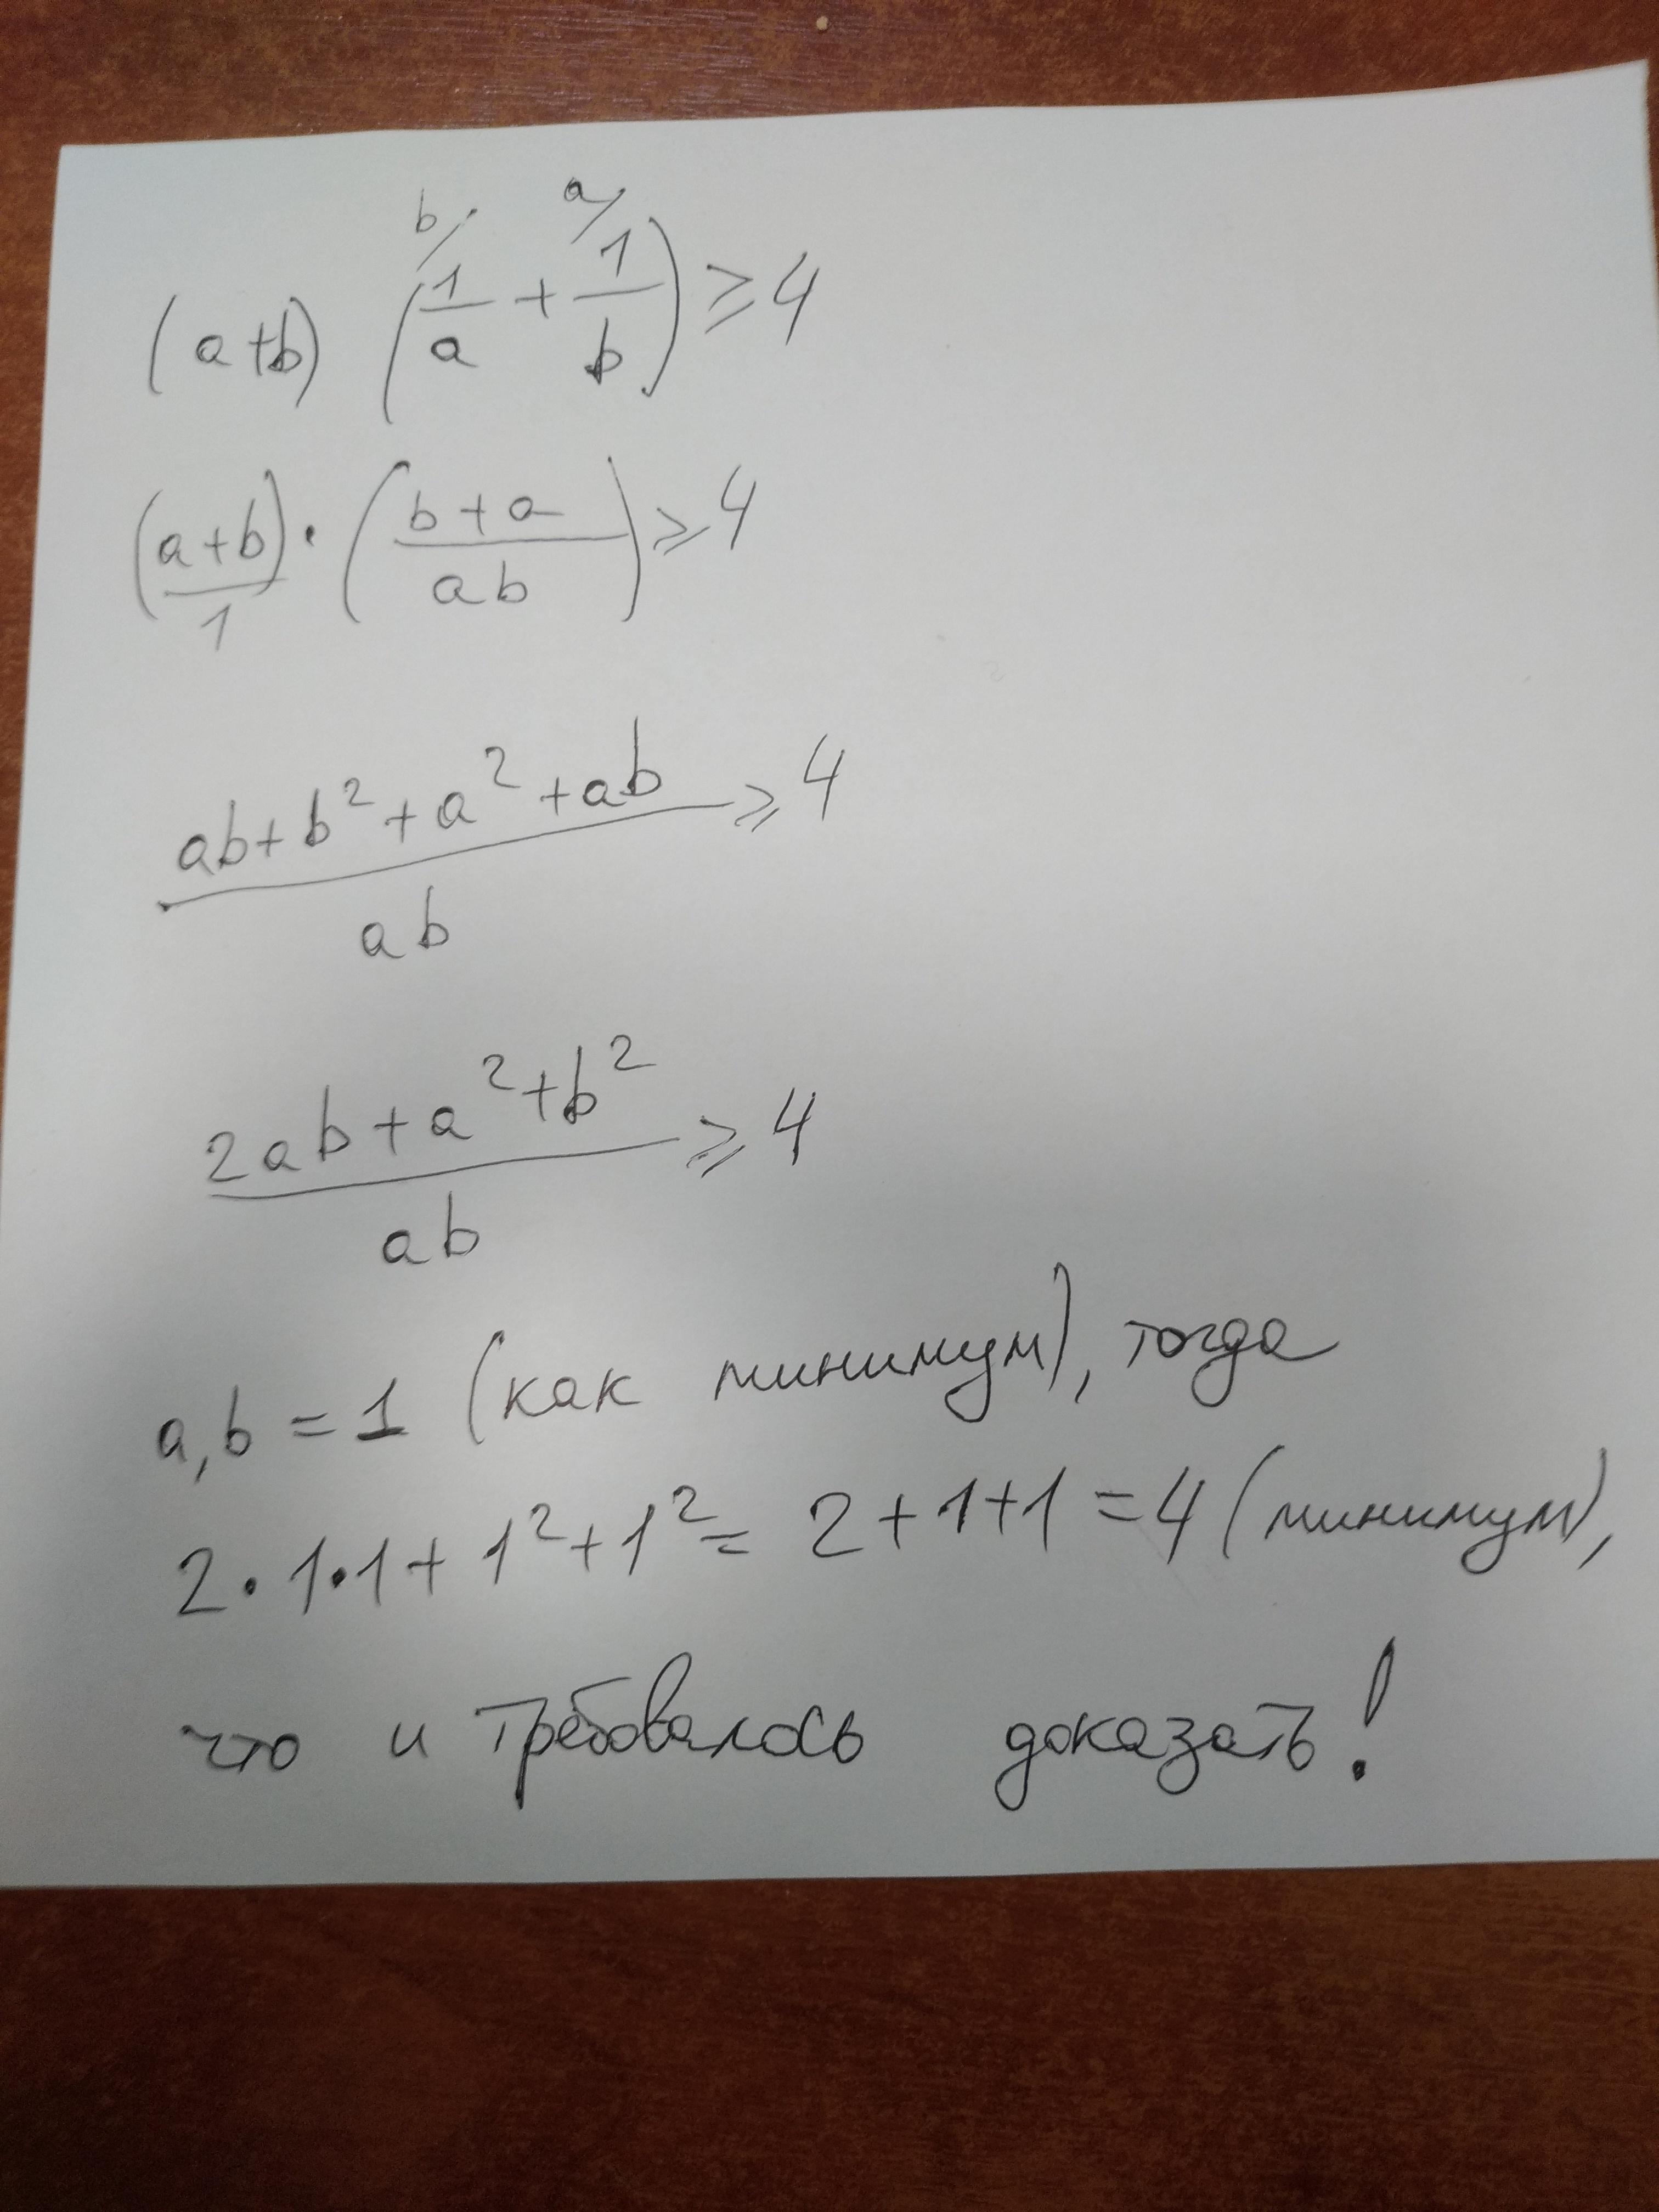 b/ a/
(a+b) (1/a + 1/b) ≥ 4
(a+b)/1 · ((b+a)/ab) ≥ 4
(ab+b²+a²+ab)/ab ≥ 4
(2ab+a²+b²)/ab ≥ 4
a,b = 1 (как минимум), тогда
2·1·1+1²+1² = 2+1+1 = 4 (минимум),
что и требовалось доказать!